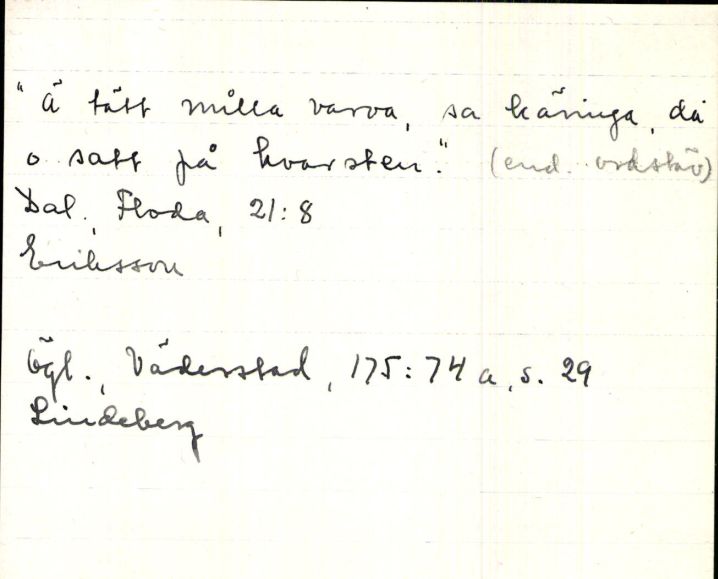 "Ä tätt milla varva, sa käringa, då
o satt på kvarsten." (end. ordstäv)
Dal., Floda, 21:8
Eriksson
Ögl., Väderstad, 175:74 a, s. 29
Lindeberg